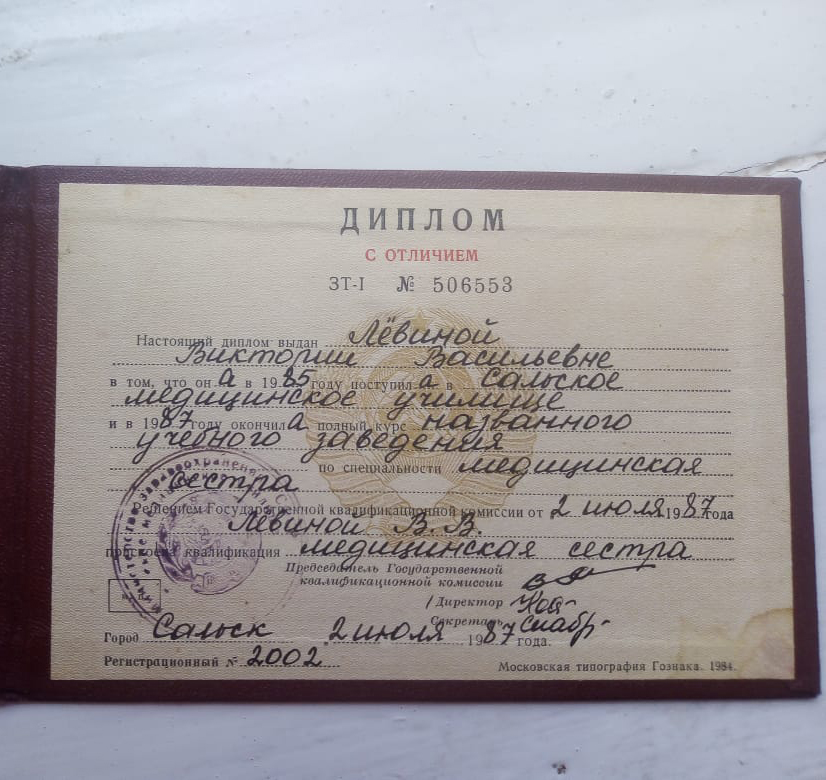 ДИПЛОМ
С ОТЛИЧИЕМ
ЗТ-I № 506553
Настоящий диплом выдан Лёвиной
Виктории Васильевне
в том, что он а в 1985 году поступил а в Сальское
медицинское училище
и в 1987 году окончил а полный курс названного
учебного заведения
по специальности медицинская
сестра
Решением Государственной квалификационной комиссии от 2 июля 1987 года
Лёвиной В. В.
присвоена квалификация медицинская сестра
Председатель Государственной
квалификационной комиссии
Директор
Секретарь
Город Сальск 2 июля 1987 года.
Регистрационный № 2002
Московская типография Гознака. 1984.